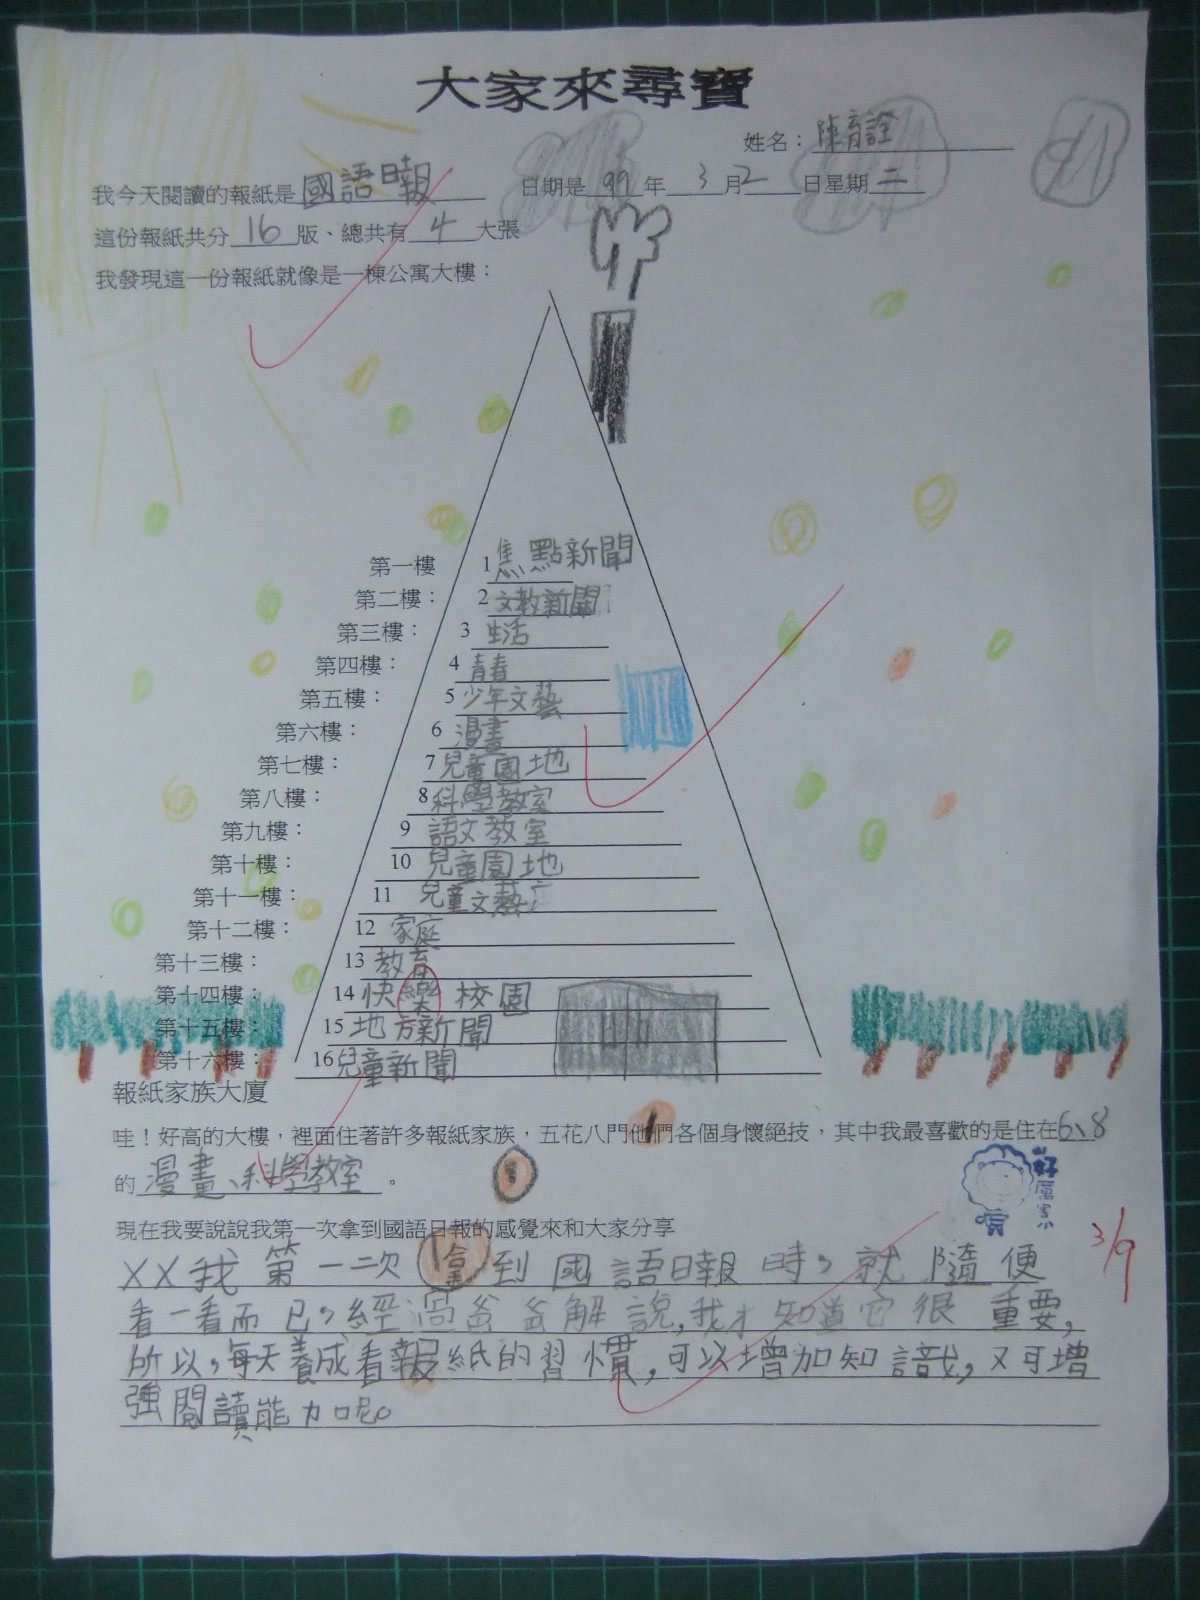 大家來尋寶
姓名：陳育詮
我今天閱讀的報紙是國語日報 日期是99年3月2日星期二
這份報紙共分16版、總共有4大張
我發現這一份報紙就像是一棟公寓大樓：
第一樓 1焦點新聞
第二樓： 2文教新聞
第三樓： 3生活
第四樓： 4青春
第五樓： 5少年文藝
第六樓： 6漫畫
第七樓： 7兒童園地
第八樓： 8科學教室
第九樓： 9語文教室
第十樓： 10兒童園地
第十一樓： 11兒童文藝
第十二樓： 12家庭
第十三樓： 13教育
第十四樓： 14快樂校園
第十五樓： 15地方新聞
第十六樓： 16兒童新聞
報紙家族大廈
哇！好高的大樓，裡面住著許多報紙家族，五花八門他們各個身懷絕技，其中我最喜歡的是住在6、8
的漫畫、科學教室。
好厲害
現在我要說說我第一次拿到國語日報的感覺來和大家分享
3/9
XX我第一次拿到國語日報時，就隨便
看一看而已，經過爸爸解說，我才知道它很重要，
所以，每天養成看報紙的習慣，可以增加知識，又可增
強閱讀能力呢。